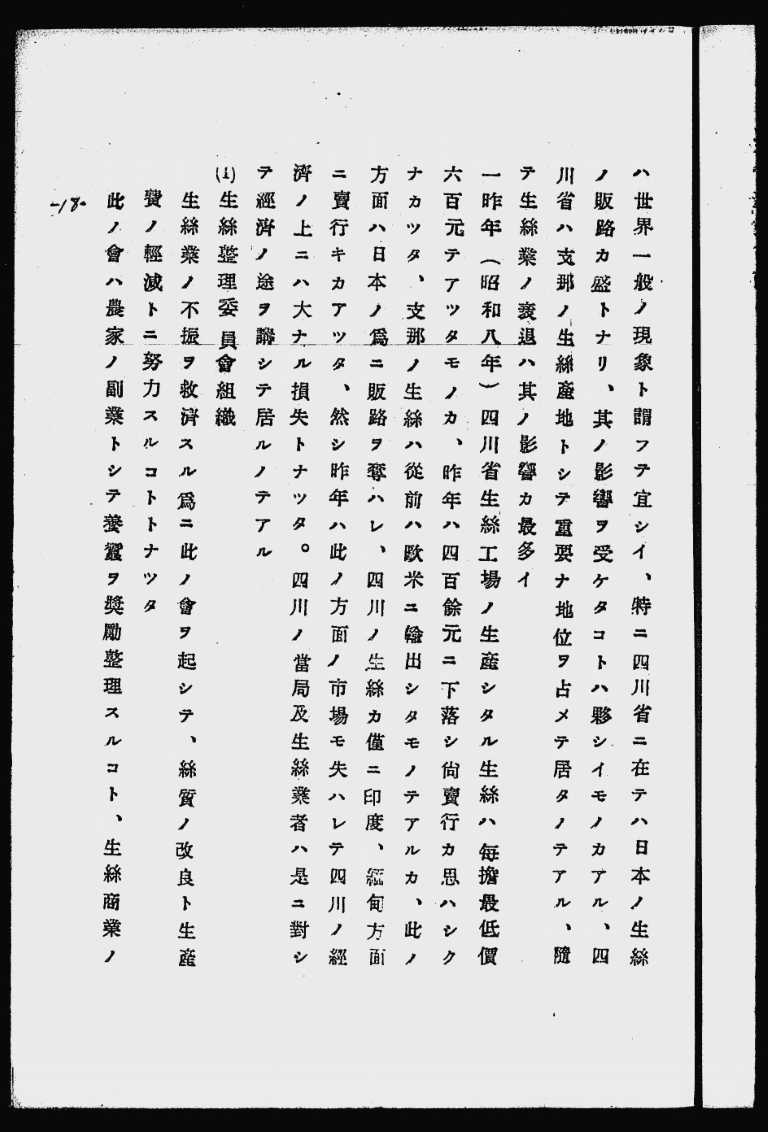 ハ世界一般ノ現象ト謂フテ宜シイ、特ニ四川省ニ在テハ日本ノ生絲
ノ販路カ盛トナリ、其ノ影響ヲ受ケタコトハ夥シイモノカアル、四
川省ハ支那ノ生絲產地トシテ重要ナ地位ヲ占メテ居タノテアル、隨
テ生絲業ノ衰退ハ其ノ影響カ最多イ
一昨年(昭和八年)四川省生絲工場ノ生產シタル生絲ハ每擔最低價
六百元テアツタモノカ、昨年ハ四百餘元ニ下落シ尙賣行カ思ハシク
ナカツタ、支那ノ生絲ハ從前ハ歐米ニ輸出シタモノテアルカ、此ノ
方面ハ日本ノ爲ニ販路ヲ奪ハレ、四川ノ生絲カ僅ニ印度、緬甸方面
ニ賣行キカアツタ、然シ昨年ハ此ノ方面ノ市場モ失ハレテ四川ノ經
濟ノ上ニハ大ナル損失トナツタ。四川ノ當局及生絲業者ハ是ニ對シ
テ經濟ノ途ヲ講シテ居ルノテアル
(1)生絲整理委員會組織
生絲業ノ不振ヲ救濟スル爲ニ此ノ會ヲ起シテ、絲質ノ改良ト生產
費ノ輕減トニ努力スルコトトナツタ
此ノ會ハ農家ノ副業トシテ養蠶ヲ奬勵整理スルコト、生絲商業ノ
-18-